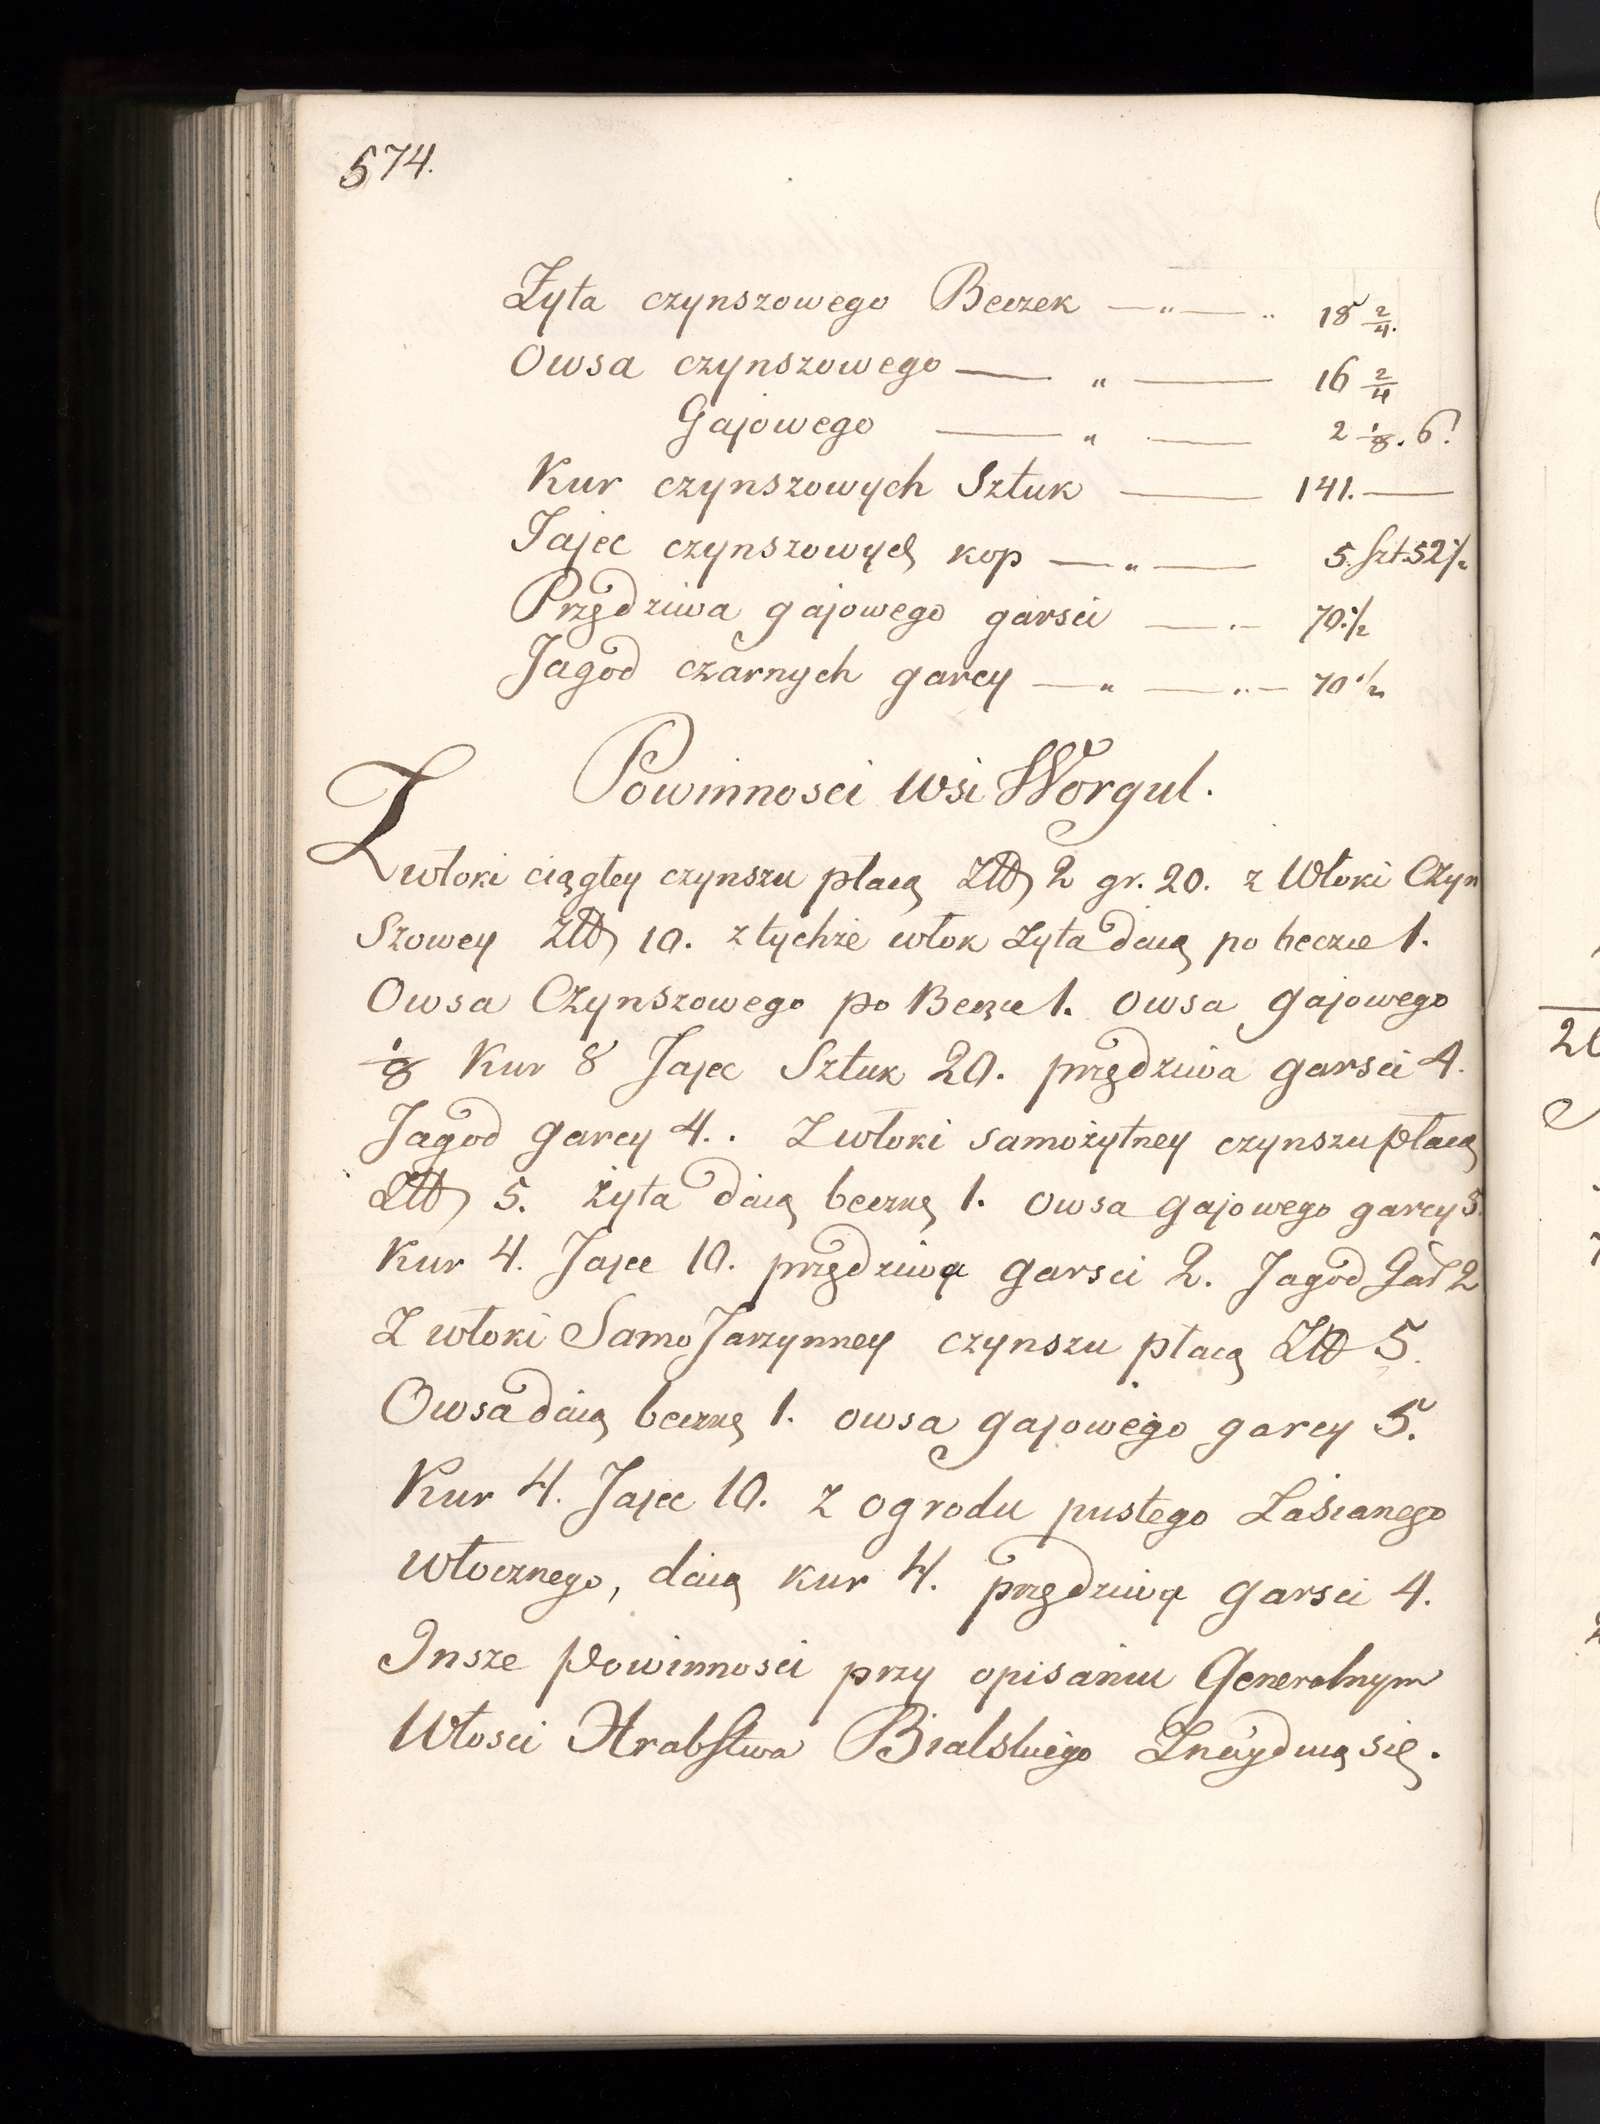 574.
Żyta czynszowego Beczek —"— " 18 2/4.
Owsa czynszowego — " — 16 2/4
Gajowego — " — 2 1/8. 6.
Kur czynszowych Sztuk — 141. —
Jajec czynszowych kop —"— 5. Szt. 52 1/2
Przędziwa gajowego garsci — "— 70 1/2
Jagod czarnych garcy —"— "— 70 1/2
Powinnosci wsi Worgul.
Z włoki ciągłey czynszu płacą Złł 2 gr. 20. z Włoki Czyn
Szowey Złł 10. z tychże włok żyta daią po beczce 1.
Owsa Czynszowego po Beczce 1. owsa gajowego
1/8 Kur 8 Jajec Sztuk 20. przędziwa garsci 4.
Jagod garcy 4.. Z włoki samożytney czynszu płacą
Złł 5. żyta daią beczkę 1. owsa gajowego garcy 5.
Kur 4. Jajec 10. przędziwa garsci 2. Jagod Gar 2
Z włoki Samo Jarzynney czynszu płacą Złł 5.
Owsa daią beczkę 1. owsa gajowego garcy 5.
Kur 4. Jajec 10. z ogrodu pustego Zasianego
włocznego, daią kur 4. przędziwa garsci 4.
Insze Powinnosci przy opisaniu Generalnym
Włosci Hrabstwa Bialskiego Znaydują się.